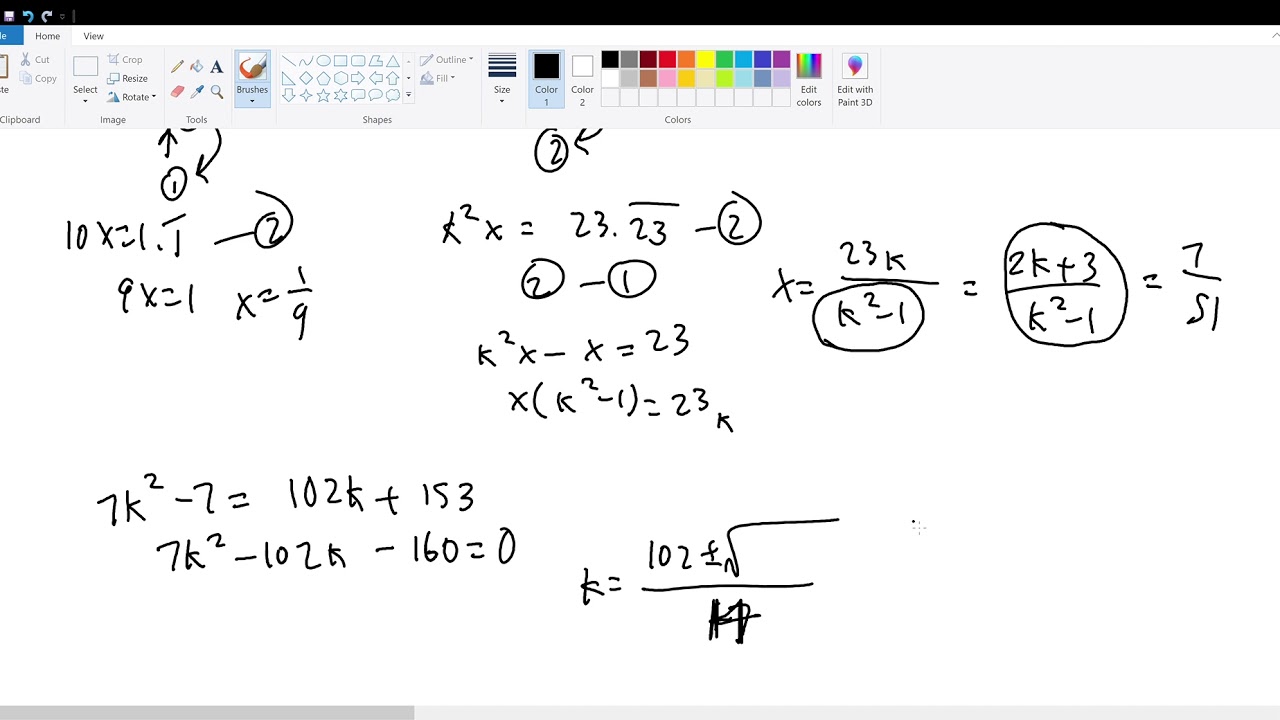 Home View
Cut
Copy
Clipboard
Select
Crop
Resize
Rotate
Image
Tools
Brushes
Outline
Fill
Shapes
Size
Color 1
Color 2
Edit colors
Edit with Paint 3D
Colors
①
②
10x=1.1̅ —②
9x=1 x=1/9
k²x = 23.2̅3̅ —②
② — ①
k²x − x = 23
x(k²−1) = 23ₖ
x = 23ₖ/(k²−1) = (2k+3)/(k²−1) = 7/51
7k² − 7 = 102k + 153
7k² − 102k − 160 = 0
k = 102 ± √